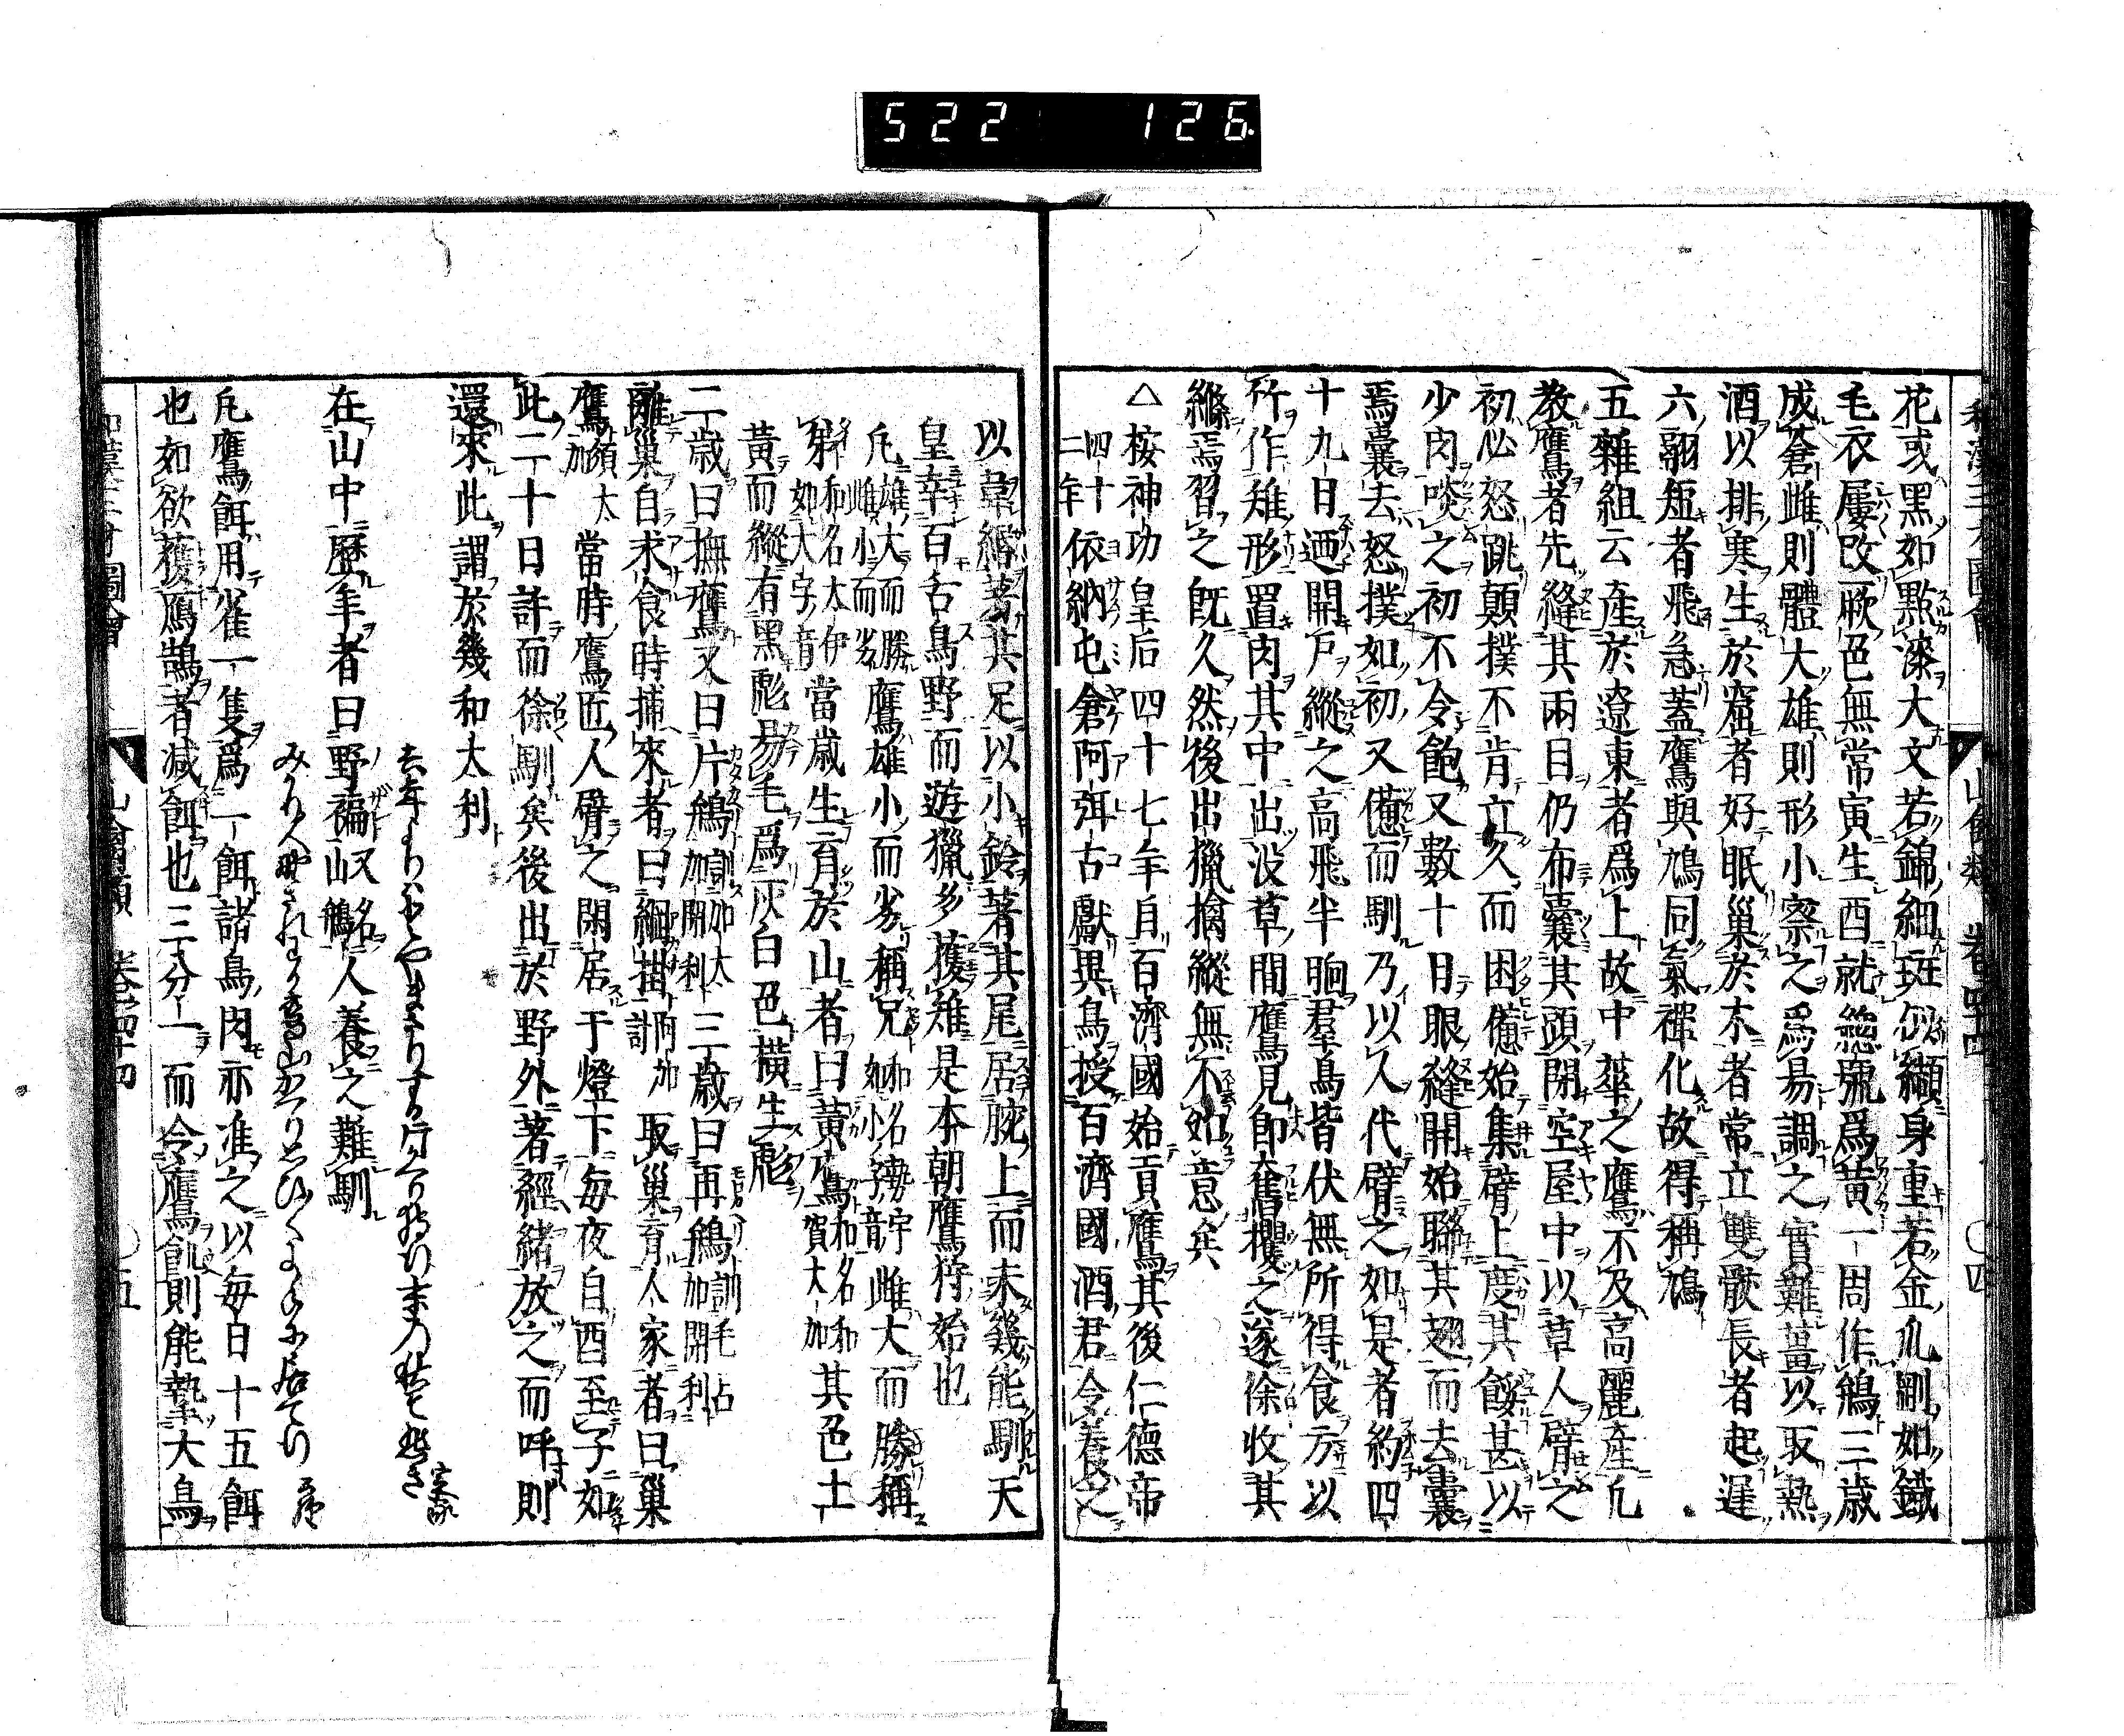 522 126
山禽類 卷四十四 ○四
花或黑如點漆大文若錦細斑似纈身重若金爪剛如鐵
毛衣屢改厥色無常寅生酉就總號爲黃一周作鷂三歲
成蒼雌則體大雄則形小察之爲易調之實難薑以取熱
酒以排寒生於窟者好眠巢於木者常立雙骹長者起遲
六翮短者飛急蓋鷹與鳩同氣禪化故得稱鳩
五雜組云產於遼東者爲上故中華之鷹不及高麗產凡
教鷹者先縫其兩目仍布囊其頭閉空屋中以草人臂之
初必怒跳顛撲不肯立久而困憊始集臂上度其餒甚以
少肉啖之初不令飽又數十日眼縫開始聯其翅而去囊
焉囊去怒撲如初又憊而馴乃以人代臂之如是者約四
十九日迺開戶縱之高飛半晌羣鳥皆伏無所得食方以
竹作雉形置肉其中出沒草間鷹見卽奮攫之遂徐收其
縧焉習之旣久然後出獵擒縱無不如意矣
△桉神功皇后四十七年自百濟國始貢鷹其後仁德帝
四十二年依納屯倉阿弭古獻異鳥授百濟國酒君令養之
以韋緡著其足以小鈴著其尾居腕上而未幾能馴天
皇幸百舌鳥野而遊獵多獲雉是本朝鷹狩始也
凡雄大而勝雌小而劣鷹雄小而劣稱兄和名勢字如小字音雌大而勝稱
弟和名太伊如大字音當歲生育於山者曰黃鷹和名和賀太加其色土
黃而縱有黑彪易毛爲灰白色橫生彪
二歲曰撫鷹又曰片鷂訓加太加閉利三歲曰再鷂訓毛呂加閉利
離巢自求食時捕來者曰網掛訓阿加取巢育人家者曰巢
鷹須太加當時鷹匠人臂之閑居于燈下每夜自酉至子如
此二十日許而徐馴矣後出於野外著經緖放之而呼則
還來此謂於幾和太利
在山中歷年者曰野褊又名山鷂人養之難馴
凡鷹餌用雀一隻爲一餌諸鳥肉亦准之以每日十五餌
也如欲獲鴈鵠者減餌也三分一而令鷹飢則能摯大鳥
山禽類 卷四十四 ○五